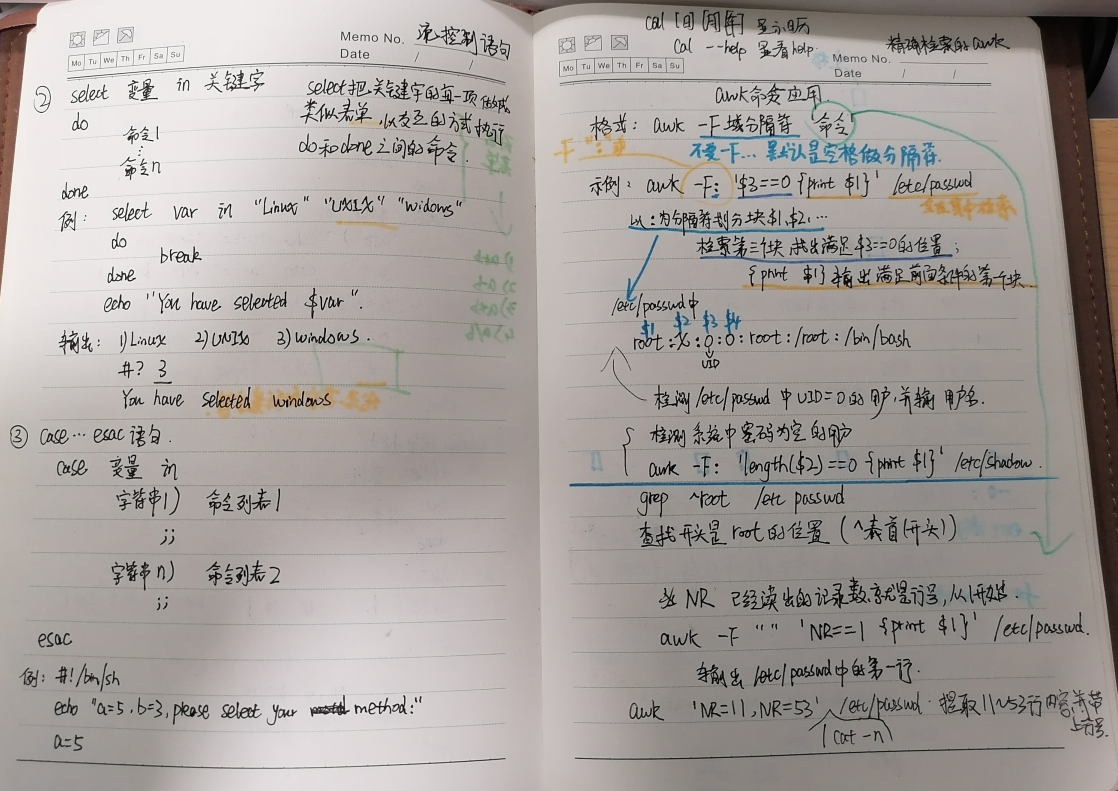 Memo No. 流控制语句
Mo Tu We Th Fr Sa Su
Date / /
② select 变量 in 关键字
do
命令1
⋮
命令n
done
select把关键字的每一项做成
类似表单,以交互的方式执行
do和done之间的命令.
例: select var in "Linux" "UNIX" "widows"
do
break
done
echo "You have selected $var".
输出: 1)Linux 2)UNIX 3)windows.
#? 3
You have selected windows
③ case…esac语句.
case 变量 in
字符串1) 命令列表1
;;
字符串n) 命令列表2
;;
esac
例: #!/bin/sh
echo "a=5,b=3,please select your method:"
a=5
cal [日][月][年] 显示日历
cal --help 显看help
精确检索的awk
Mo Tu We Th Fr Sa Su
Memo No.
Date / /
awk命令应用
格式: awk -F 域分隔符 '命令'
不要-F… 默认是空格做分隔符.
示例: awk -F: '$3==0 {print $1}' /etc/passwd
以:为分隔符划分块$1,$2,…
检索第三个块 找出满足$3==0的位置;
{print $1}输出满足前面条件的第一个块.
/etc/passwd中
$1 $2 $3 $4
root:x:0:0:root:/root:/bin/bash
UID
检测/etc/passwd中UID=0的用户,并输用户名.
检测系统中密码为空的用户
awk -F: 'length($2)==0 {print $1}' /etc/shadow.
grep ^root /etc passwd
查找开头是root的位置(^表首(开头))
NR 已经读出的记录数,就是行号,从1开始.
awk -F " " 'NR==1 {print $1}' /etc/passwd.
输出/etc/passwd中的第一行.
awk 'NR=11,NR=53' /etc/passwd. 提取11~53行内容,并带
上行号.
(cat -n)